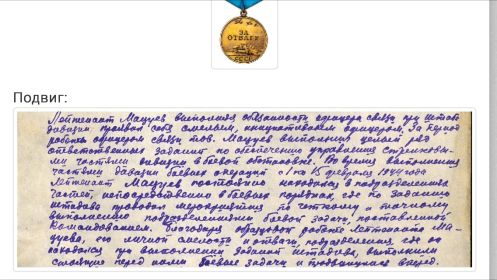 ЗА
ОТВАГУ
Подвиг:
Лейтенант Мацуев выполняя обязанности офицера связи при штабе
дивизии проявил себя смелым, инициативным офицером. За период
работы офицером связи тов. Мацуев выполнил целый ряд
ответственных заданий по обеспечению управления стрелковы-
ми частями дивизии в боевой обстановке. Во время выполнения
частями дивизии боевых операций с 1 по 15 февраля 1944 года
лейтенант Мацуев постоянно находился в подразделениях
частей, непосредственно в боевых порядках, где по заданию
штадива проводил мероприятия по четкому и точному
выполнению подразделениями боевой задачи, поставленной
командованием. Благодаря образцовой работе лейтенанта Ма-
цуева, его личной смелости и отваги, подразделения где он
находился при выполнении заданий штадива, выполнили
стоящие перед ними боевые задачи и продвинулись вперед.